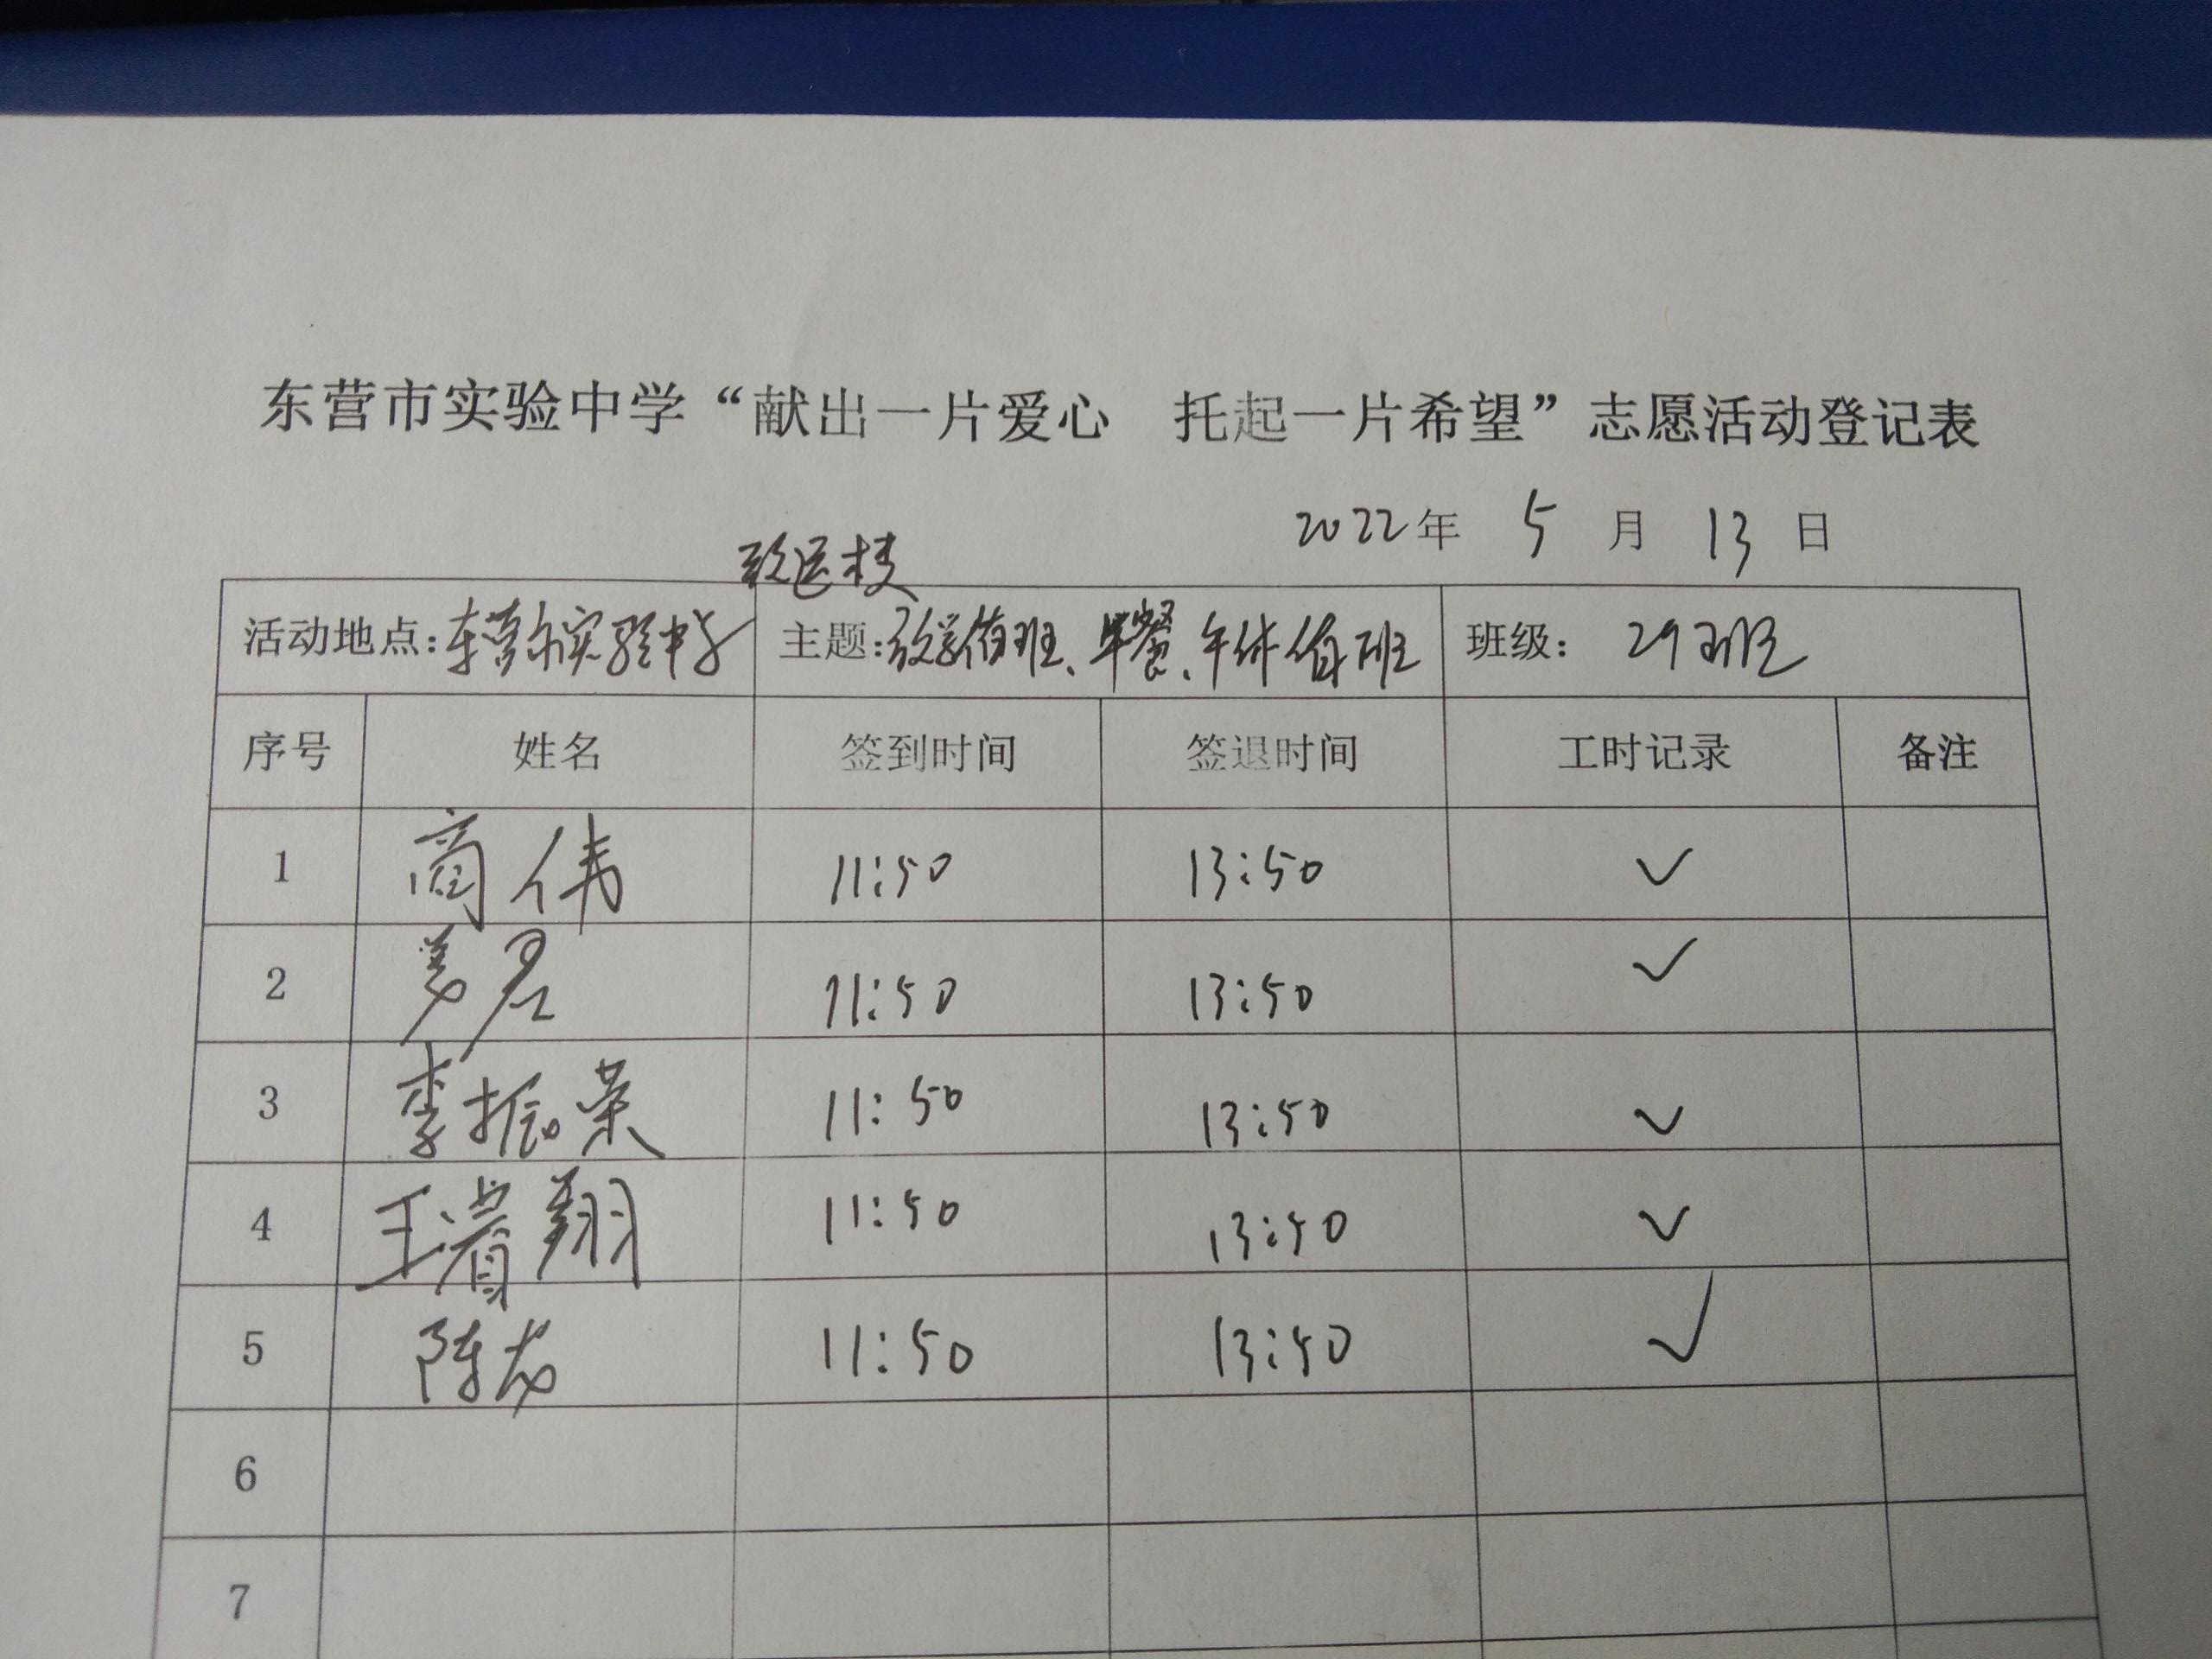 东营市实验中学“献出一片爱心 托起一片希望”志愿活动登记表
2022年 5 月 13 日
活动地点:东营市实验中学 主题:放学值班、午餐、午休值班 班级: 29班
序号 姓名 签到时间 签退时间 工时记录 备注
1 商伟 11:50 13:50 ✓
2 姜君 11:50 13:50 ✓
3 李振荣 11:50 13:50 ✓
4 王 翔 11:50 13:50 ✓
5 陈龙 11:50 13:50 ✓
6
7